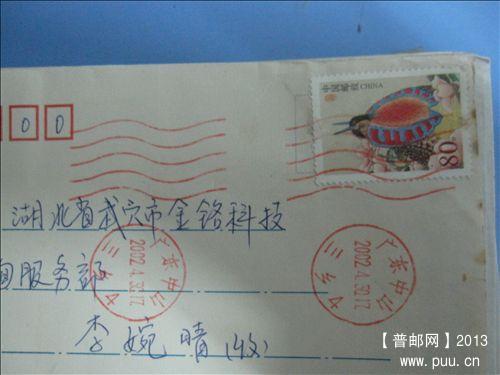 中国邮政 CHINA
80
0 0
湖北省武穴市金铬科技
询服务部
李婉晴(收)
广东中山
2002.4.30.17
三乡
广东中山
2002.4.30.17
三乡
【普邮网】2013
www.puu.cn